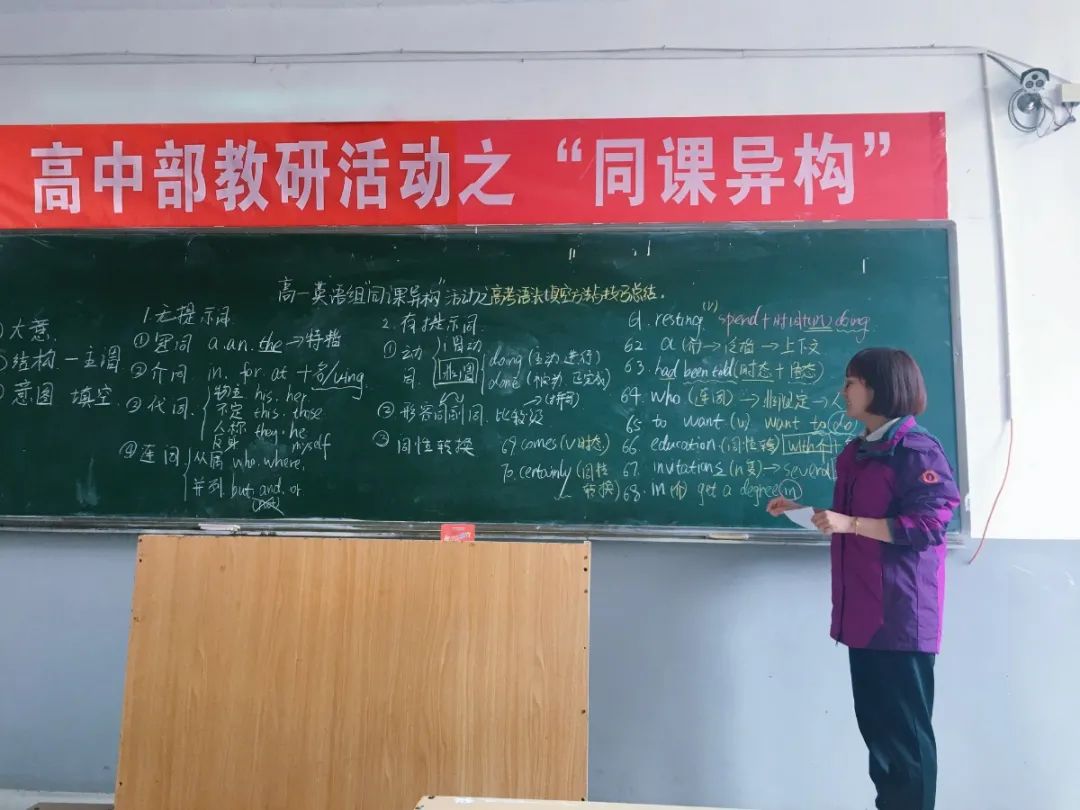 高中部教研活动之“同课异构”
高一英语组"同课异构"活动之高考语法填空方法与技巧总结.
大意.
结构 — 主谓
意图 填空
1.无提示词.
①冠词 a.an.the→特指
②介词 in. for. at + 名/ving
③代词
物主 his. her
不定 this. those
人称 they. he
反身 myself
④连词
从属 who. where,
并列 but. and. or
2. 有提示词.
①动词
谓动
非谓
doing (主动 进行)
done (被动 已完成)
②形容词副词 比较级
③词性转换
61. resting. (v) spend + 时间(in) doing
62. a (冠)→泛指→上下文
63. had been told (时态+语态)
64. who (连词)→非限定→人
65 to want (v) want to do
66 education (词性转)
67. invitations (n复)→several
68. in (介) get a degree in
69 comes (v 时态)
70. certainly (词性转换)